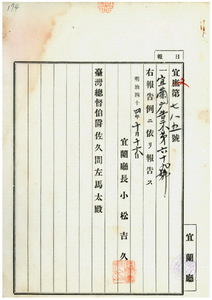 194
日報
宜庶第七八五號
一宜蘭廳告示第六十九號
右報告例ニ依リ報告ス
明治四十四年十月十六日
宜蘭廳長小松吉久
臺灣總督伯爵佐久間左馬太殿
宜蘭廳